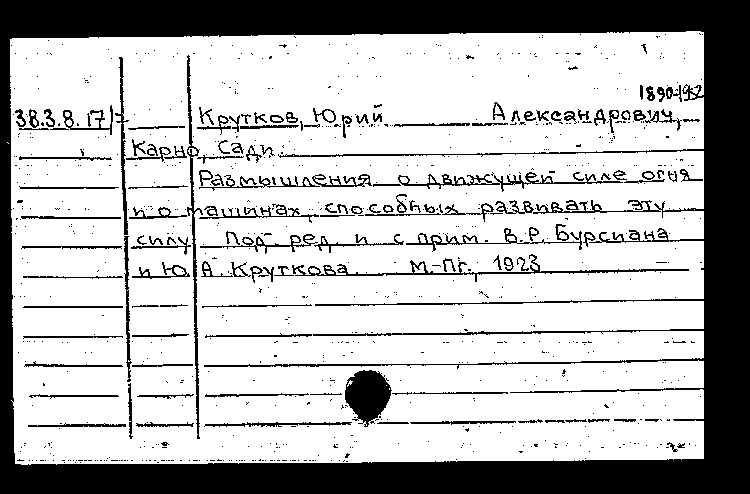 1890-1952
38.3.8.17/= Крутков, Юрий Александрович,
Карно, Сади.
Размышления о движущей силе огня
и о машинах, способных развивать эту
силу. Под ред. и с прим. В.Р. Бурсиана
и Ю.А. Круткова. М.-Пг., 1923